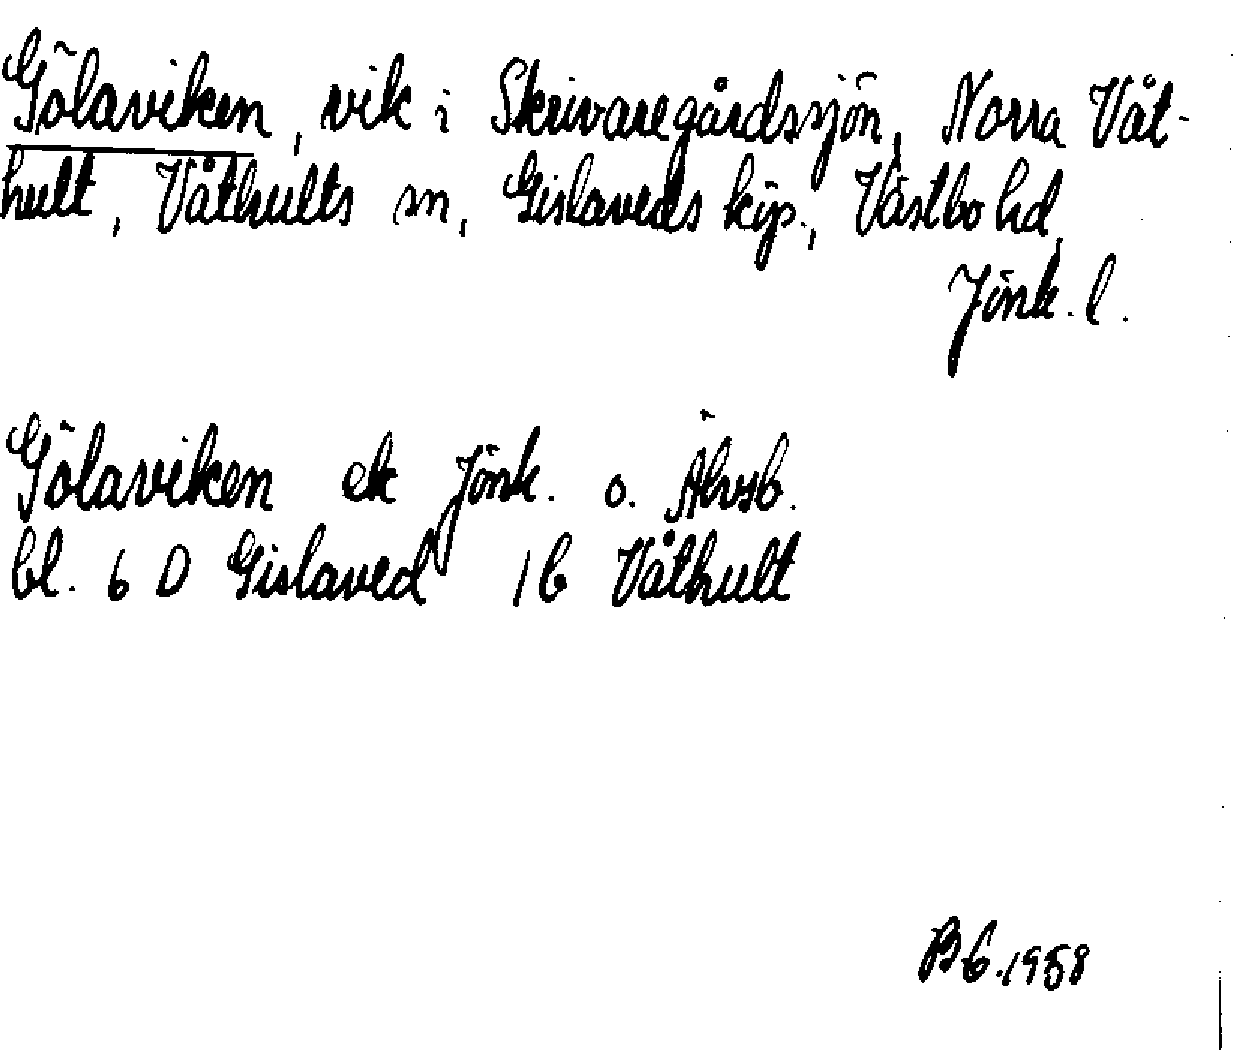 Gölaviken, vik i Skrivaregårdssjön, Norra Våt-
hult, Våthults sn, Gislaveds köp., Västbo hd,
Jönk. l.
Gölaviken ek Jönk. o. Älvsb.
bl. 6 D Gislaved 1b Våthult
B6.1958